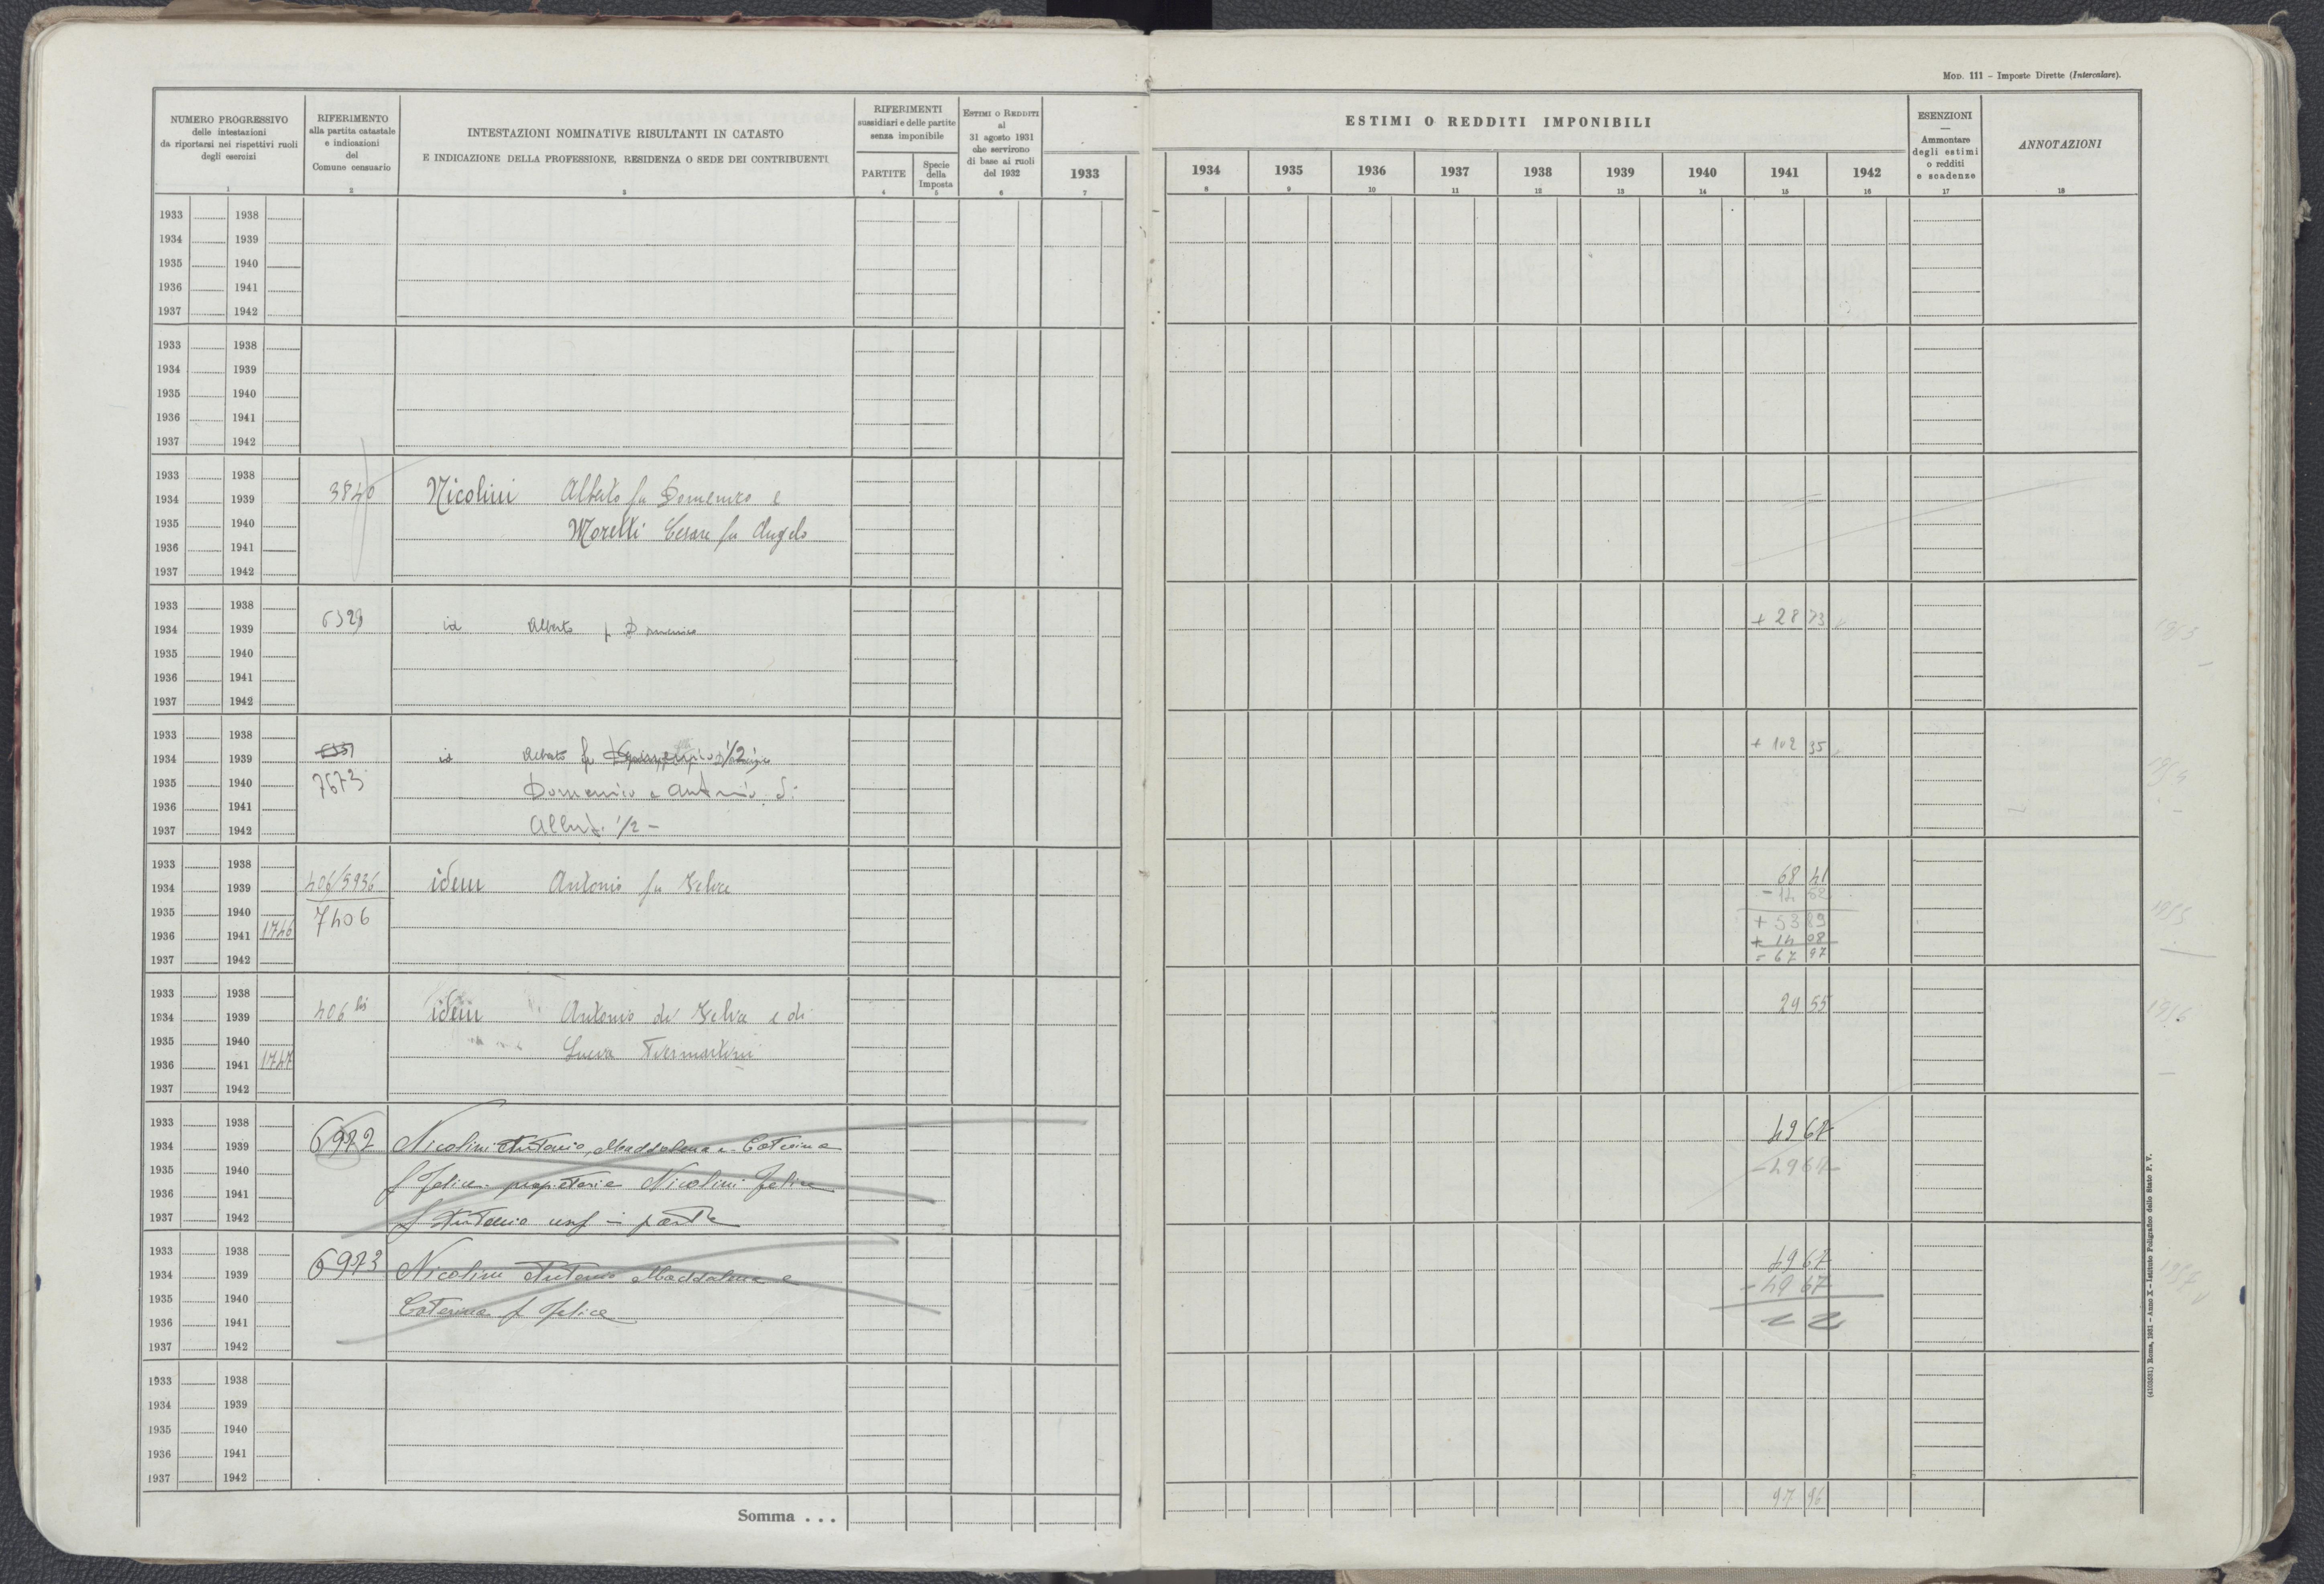 MOD. 111 – Imposte Dirette (Intercalare).
NUMERO PROGRESSIVO
delle intestazioni
da riportarsi nei rispettivi ruoli
degli esercizi
1
RIFERIMENTO
alla partita catastale
e indicazioni
del
Comune censuario
2
INTESTAZIONI NOMINATIVE RISULTANTI IN CATASTO
E INDICAZIONE DELLA PROFESSIONE, RESIDENZA O SEDE DEI CONTRIBUENTI
3
RIFERIMENTI
sussidiari e delle partite
senza imponibile
PARTITE
4
Specie
della
Imposta
5
ESTIMI O REDDITI
al
31 agosto 1931
che servirono
di base ai ruoli
del 1932
6
1933
7
ESTIMI O REDDITI IMPONIBILI
1934 1935 1936 1937 1938 1939 1940 1941 1942
8 9 10 11 12 13 14 15 16
ESENZIONI
—
Ammontare
degli estimi
o redditi
e scadenze
17
ANNOTAZIONI
18
1933 1938
1934 1939
1935 1940
1936 1941
1937 1942
1933 1938
1934 1939
1935 1940
1936 1941
1937 1942
1933 1938
1934 1939 3840 Nicolini Alberto fu Domenico e
1935 1940 Moretti Cesare fu Angelo
1936 1941
1937 1942
1933 1938
1934 1939 id Alberto f Domenico + 28 73
1935 1940
1936 1941
1937 1942
1933 1938
1934 1939 id Alberto fu 1/2 + 102 35
1935 1940 7673 Domenico e Antonio di
1936 1941
1937 1942 Alberto 1/2 –
1933 1938
1934 1939 406/5936 idem Antonio fu Felice 68 41
1935 1940 7406
1936 1941 1746 + 53 89
+ 14 08
1937 1942 = 67 97
1933 1938
1934 1939 406 bis idem Antonio di Felice e di 29 55
1935 1940
1936 1941 1747
1937 1942
1933 1938
1934 1939 6972 Nicolini Antonio, Maddalena e Caterina 49 67
1935 1940 – 49 67
1936 1941 f Felice proprietari e Nicolini Felice
1937 1942 f Antonio usuf in parte
1933 1938
1934 1939 6973 Nicolini Antonio Maddalena e 49 67
1935 1940 Caterina f Felice – 49 67
1936 1941
1937 1942
1933 1938
1934 1939
1935 1940
1936 1941
1937 1942
Somma . . . 97 96
(4103631) Roma, 1931 – Anno X – Istituto Poligrafico dello Stato P. V.